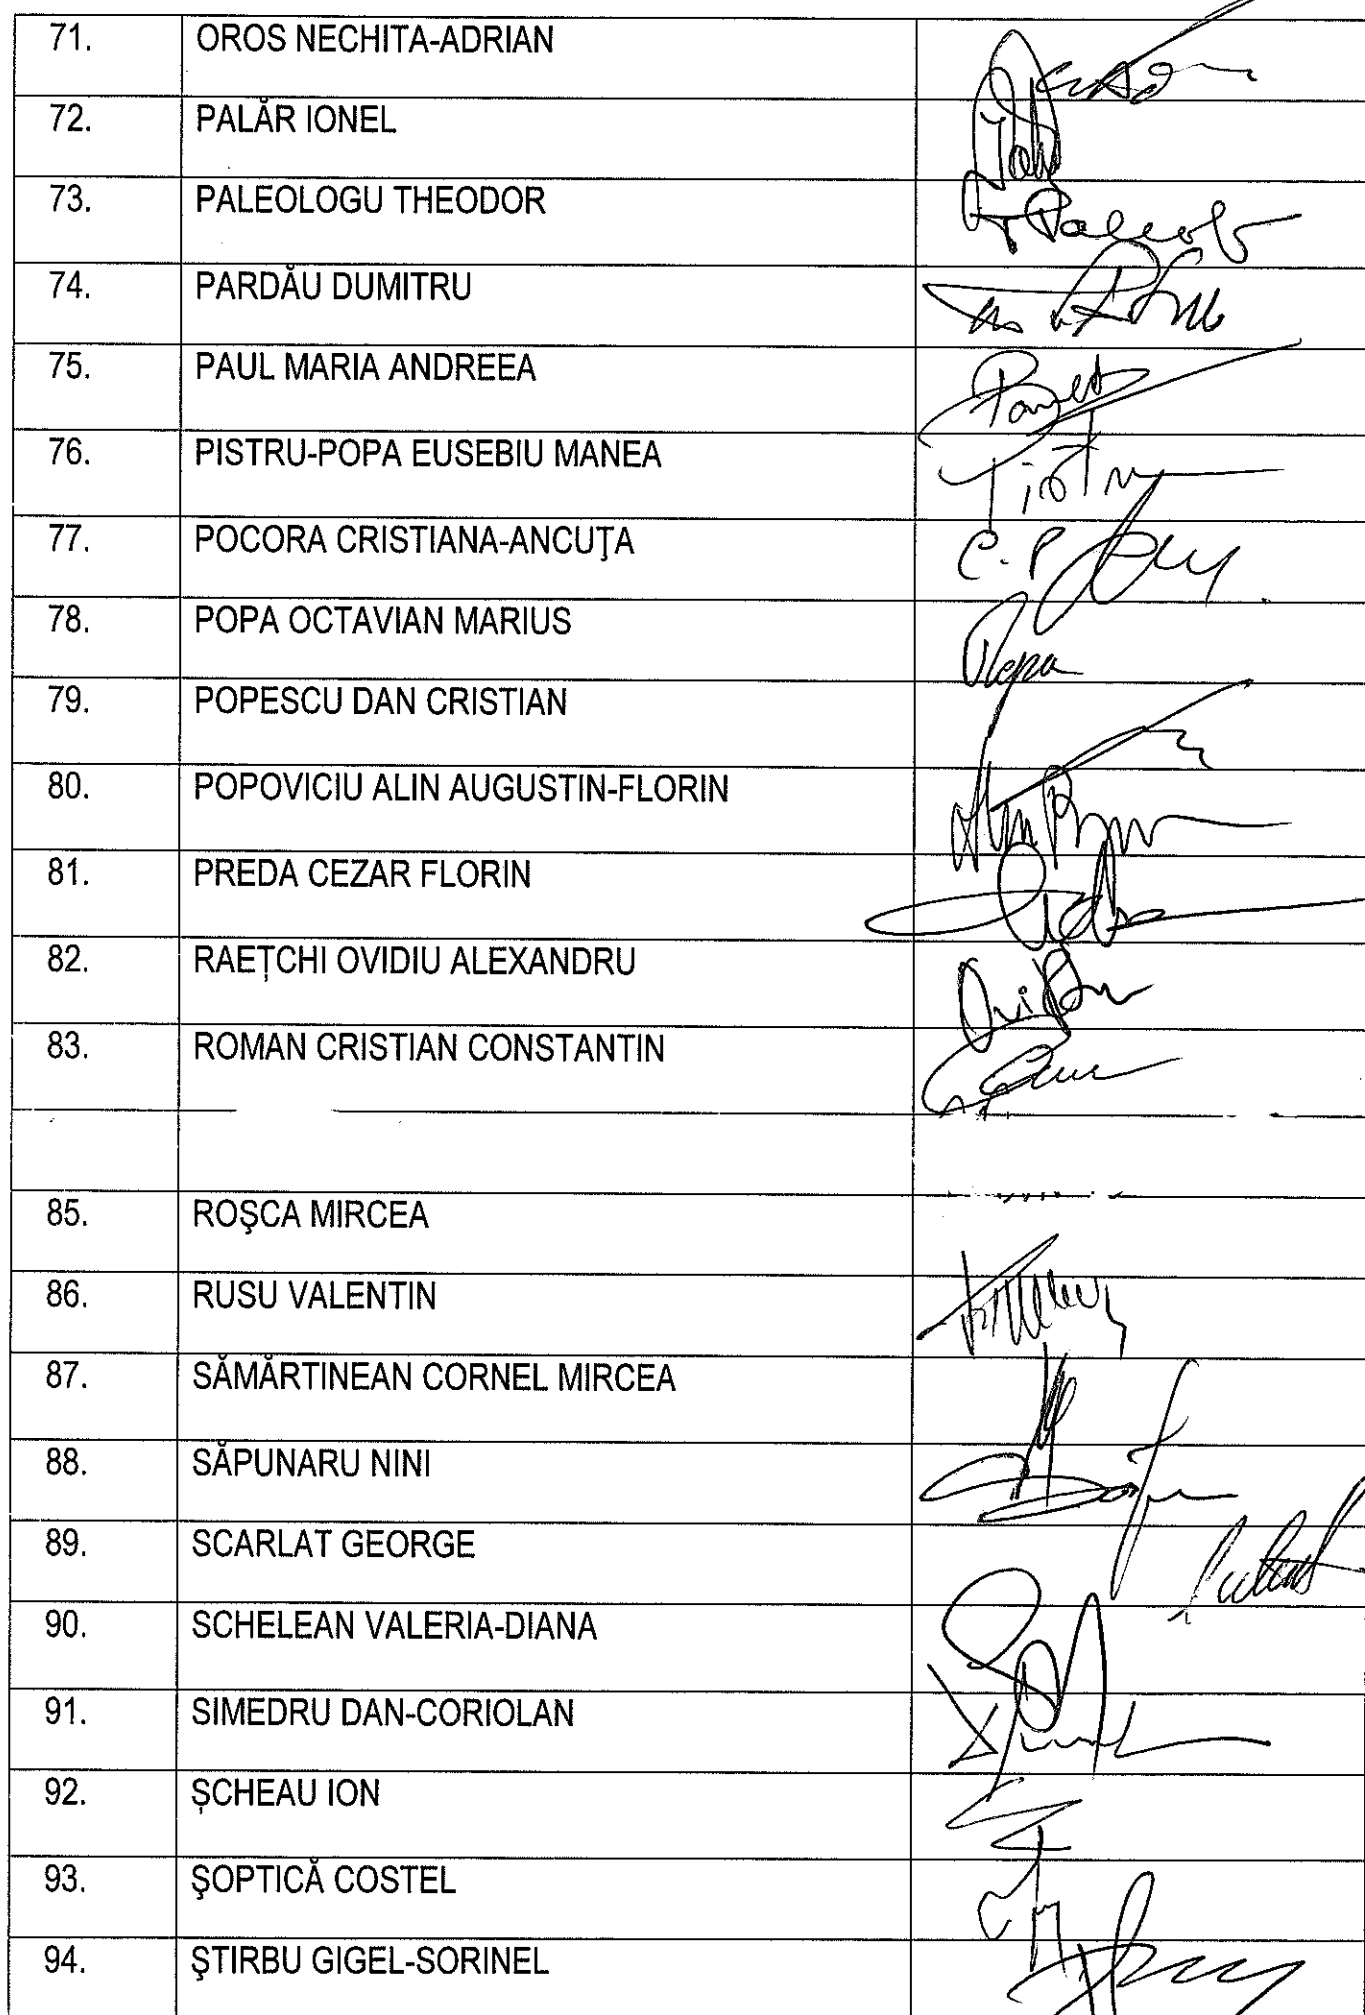 71. OROS NECHITA-ADRIAN
72. PALĂR IONEL
73. PALEOLOGU THEODOR
74. PARDĂU DUMITRU
75. PAUL MARIA ANDREEA
76. PISTRU-POPA EUSEBIU MANEA
77. POCORA CRISTIANA-ANCUŢA C.P
78. POPA OCTAVIAN MARIUS
79. POPESCU DAN CRISTIAN
80. POPOVICIU ALIN AUGUSTIN-FLORIN
81. PREDA CEZAR FLORIN
82. RAEȚCHI OVIDIU ALEXANDRU
83. ROMAN CRISTIAN CONSTANTIN
85. ROŞCA MIRCEA
86. RUSU VALENTIN
87. SĂMĂRTINEAN CORNEL MIRCEA
88. SĂPUNARU NINI
89. SCARLAT GEORGE
90. SCHELEAN VALERIA-DIANA
91. SIMEDRU DAN-CORIOLAN
92. ȘCHEAU ION
93. ŞOPTICĂ COSTEL
94. ŞTIRBU GIGEL-SORINEL